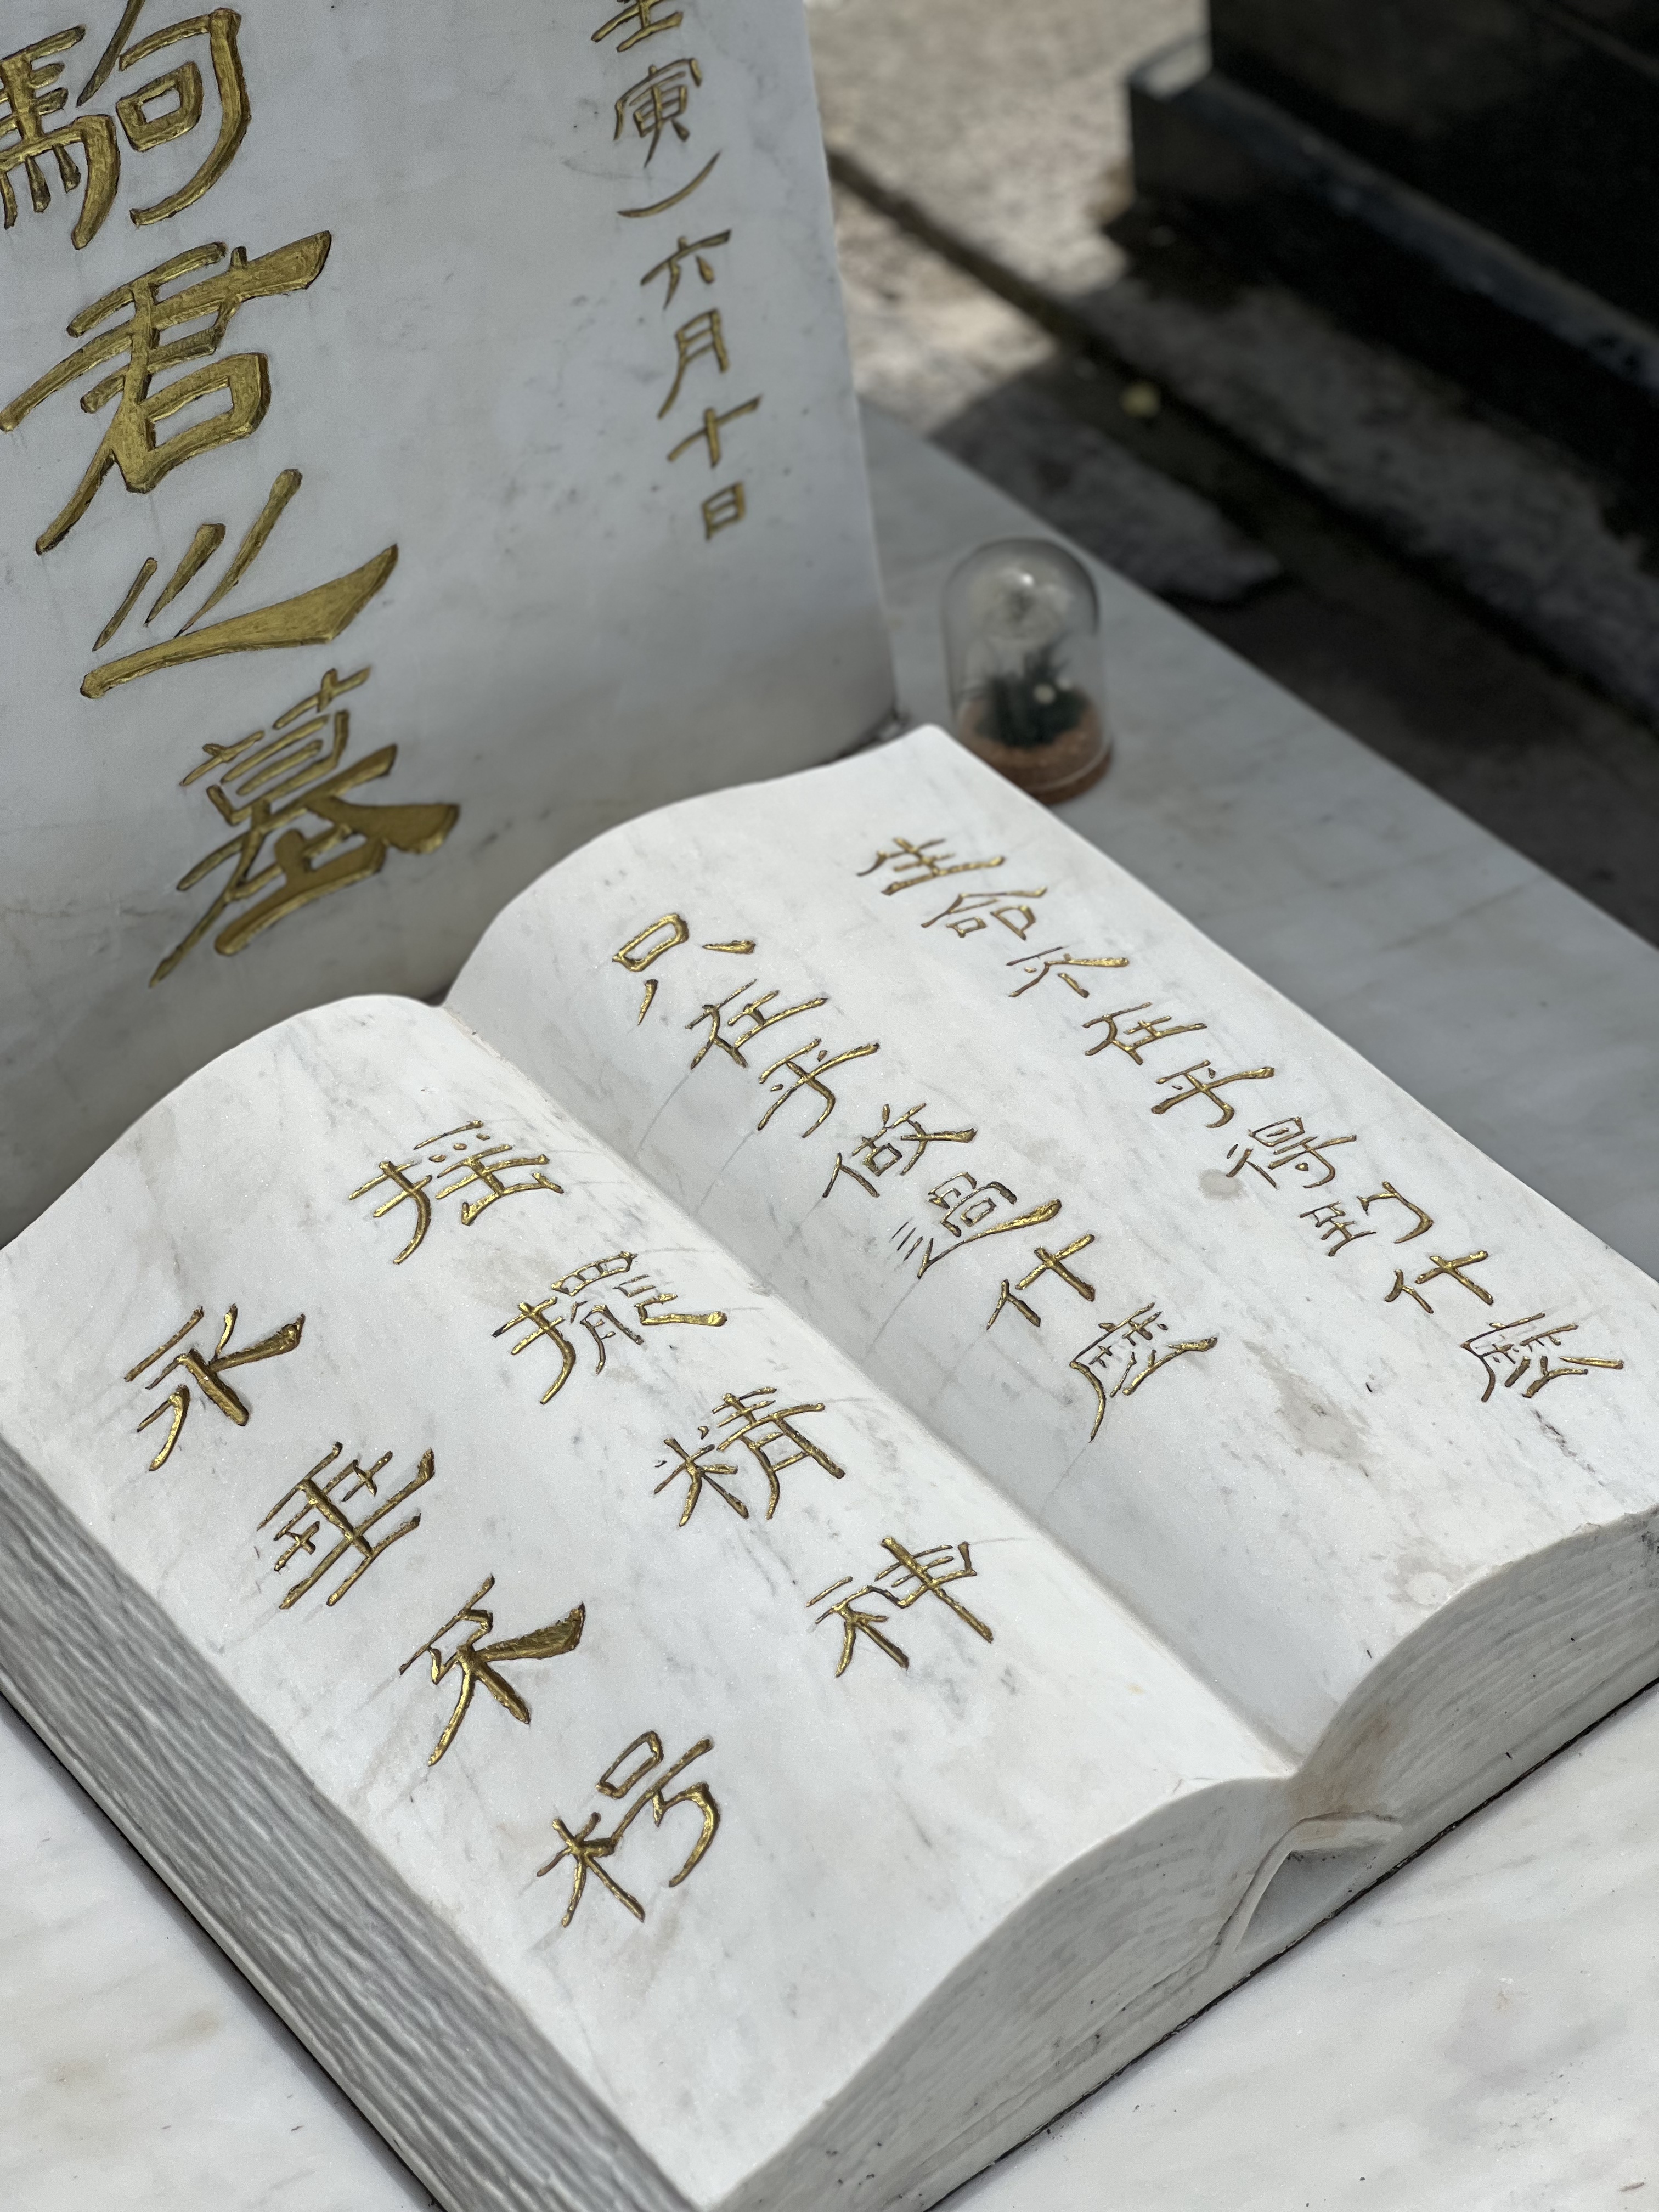 壬寅）六月十日
駒君之墓
生命不在乎得到什麼
只在乎做過什麼
搖擺精神
永垂不朽